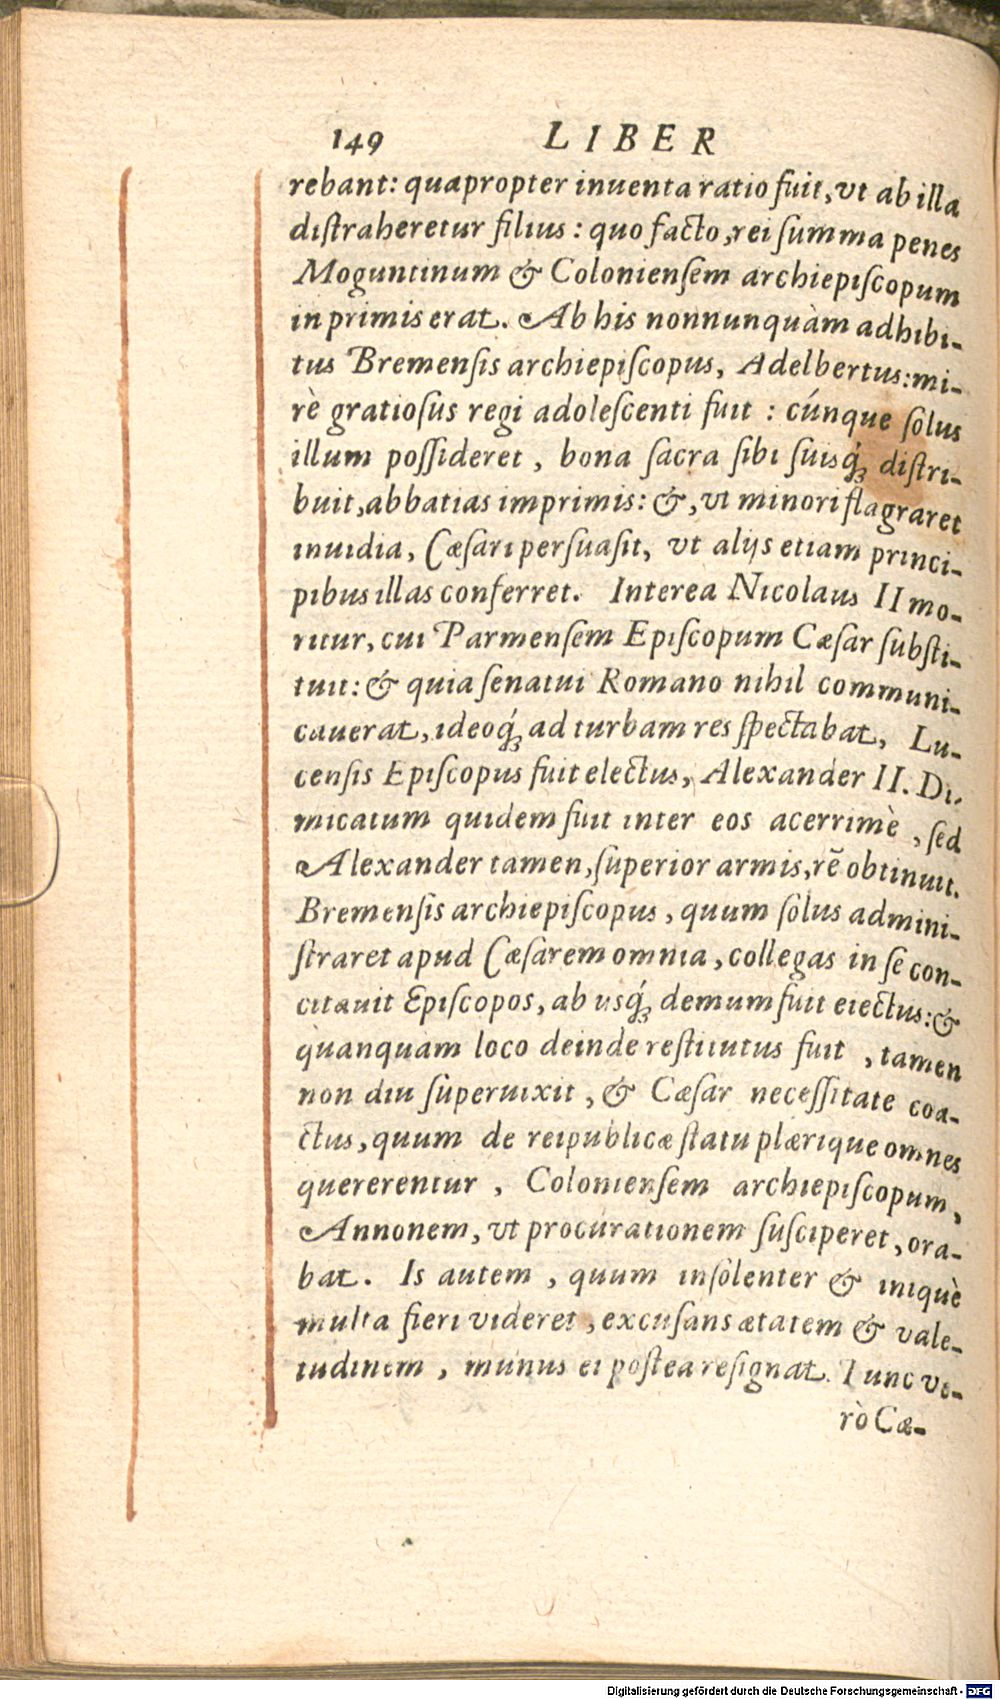 149 LIBER
rebant: quapropter inuenta ratio fuit, vt ab illa
distraheretur filius: quo facto, rei summa penes
Moguntinum & Coloniensem archiepiscopum
inprimis erat. Ab his nonnunquàm adhibi-
tus Bremensis archiepiscopus, Adelbertus: mi-
rè gratiosus regi adolescenti fuit: cúnque solus
illum possideret, bona sacra sibi suisq́; distri-
buit, abbatias imprimis: &, vt minori flagraret
inuidia, Cæsari persuasit, vt alijs etiam princi-
pibus illas conferret. Interea Nicolaus II mo-
ritur, cui Parmensem Episcopum Cæsar substi-
tuit: & quia senatui Romano nihil communi-
cauerat, ideoq́; ad turbam res spectabat, Lu-
censis Episcopus fuit electus, Alexander II. Di-
micatum quidem fuit inter eos acerrimè, sed
Alexander tamen, superior armis, rē obtinuit.
Bremensis archiepiscopus, quum solus admini-
straret apud Cæsarem omnia, collegas in se con-
citauit Episcopos, ab usq́; demum fuit eiectus: &
quanquam loco deinde restitutus fuit, tamen
non diu superuixit, & Cæsar necessitate coa-
ctus, quum de reipublicæ statu plærique omnes
quererentur, Coloniensem archiepiscopum,
Annonem, vt procurationem susciperet, ora-
bat. Is autem, quum insolenter & iniquè
multa fieri videret, excusans ætatem & vale-
tudinem, munus ei postea resignat. Tunc ve-
rò Cæ-
Digitalisierung gefördert durch die Deutsche Forschungsgemeinschaft - DFG